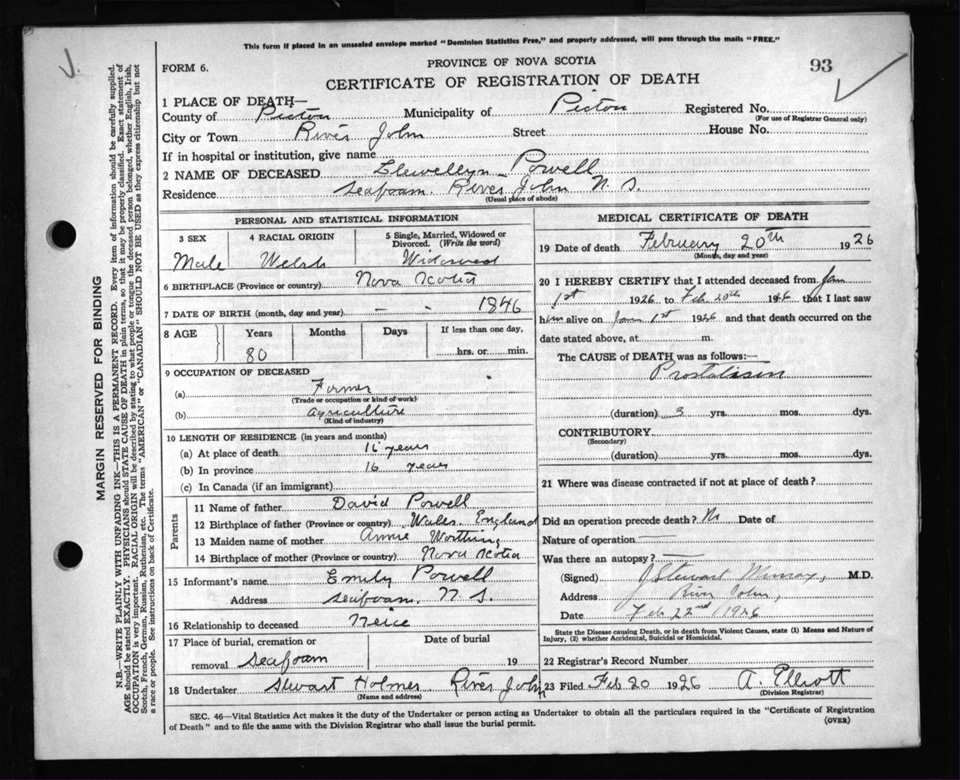 This form if placed in an unsealed envelope marked "Dominion Statistics Free," and properly addressed, will pass through the mails "FREE."
PROVINCE OF NOVA SCOTIA
FORM 6.
93
CERTIFICATE OF REGISTRATION OF DEATH
1 PLACE OF DEATH—
County of Pictou Municipality of Pictou Registered No.
(For use of Registrar General only)
City or Town River John Street House No.
If in hospital or institution, give name
2 NAME OF DECEASED Llewellyn Powell
Residence Seafoam. River John N. S.
(Usual place of abode)
PERSONAL AND STATISTICAL INFORMATION
3 SEX 4 RACIAL ORIGIN 5 Single, Married, Widowed or Divorced. (Write the word)
Male Welsh Widowed
6 BIRTHPLACE (Province or country) Nova Scotia
7 DATE OF BIRTH (month, day and year) - - 1846
8 AGE Years Months Days If less than one day,
80 hrs. or min.
9 OCCUPATION OF DECEASED
(a) Farmer
(Trade or occupation or kind of work)
(b) Agriculture
(Kind of industry)
10 LENGTH OF RESIDENCE (in years and months)
(a) At place of death 16 years
(b) In province 16 years
(c) In Canada (if an immigrant)
Parents
11 Name of father David Powell
12 Birthplace of father (Province or country) Wales. England
13 Maiden name of mother Annie
14 Birthplace of mother (Province or country) Nova Scotia
15 Informant's name Emily Powell
Address Seafoam. N. S.
16 Relationship to deceased Neice
17 Place of burial, cremation or removal Seafoam Date of burial 19
18 Undertaker Stewart Holmes River John
(Name and address)
MEDICAL CERTIFICATE OF DEATH
19 Date of death February 20th 1926
(Month, day and year)
20 I HEREBY CERTIFY that I attended deceased from Jan
1st 1926 to Feb 20th 1926 that I last saw
him alive on Jan 1st 1926 and that death occurred on the
date stated above, at m.
The CAUSE OF DEATH was as follows:
(duration) 3 yrs. mos. dys.
CONTRIBUTORY
(Secondary)
(duration) yrs. mos. dys.
21 Where was disease contracted if not at place of death?
Did an operation precede death? No Date of
Nature of operation
Was there an autopsy?
(Signed) J Stewart M.D.
Address River John,
Date Feb 22nd 1926
State the Disease causing Death, or in death from Violent Causes, state (1) Means and Nature of Injury, (2) whether Accidental, Suicidal or Homicidal.
22 Registrar's Record Number
23 Filed Feb 20 1926 A. Elliott
(Division Registrar)
SEC. 46—Vital Statistics Act makes it the duty of the Undertaker or person acting as Undertaker to obtain all the particulars required in the "Certificate of Registration
of Death" and to file the same with the Division Registrar who shall issue the burial permit.
(OVER)
MARGIN RESERVED FOR BINDING
N.B.—WRITE PLAINLY WITH UNFADING INK—THIS IS A PERMANENT RECORD. Every item of information should be carefully supplied.
AGE should be stated EXACTLY. PHYSICIANS should STATE CAUSE OF DEATH in plain terms, so that it may be properly classified. Exact statement of
OCCUPATION is very important. RACIAL ORIGIN will be described by stating to what people or tongue the deceased person belonged, whether English, Irish,
Scotch, French, German, Russian, Ruthenian, etc. The terms "AMERICAN" or "CANADIAN" SHOULD NOT BE USED as they express citizenship but not
a race or people. See instructions on back of Certificate.